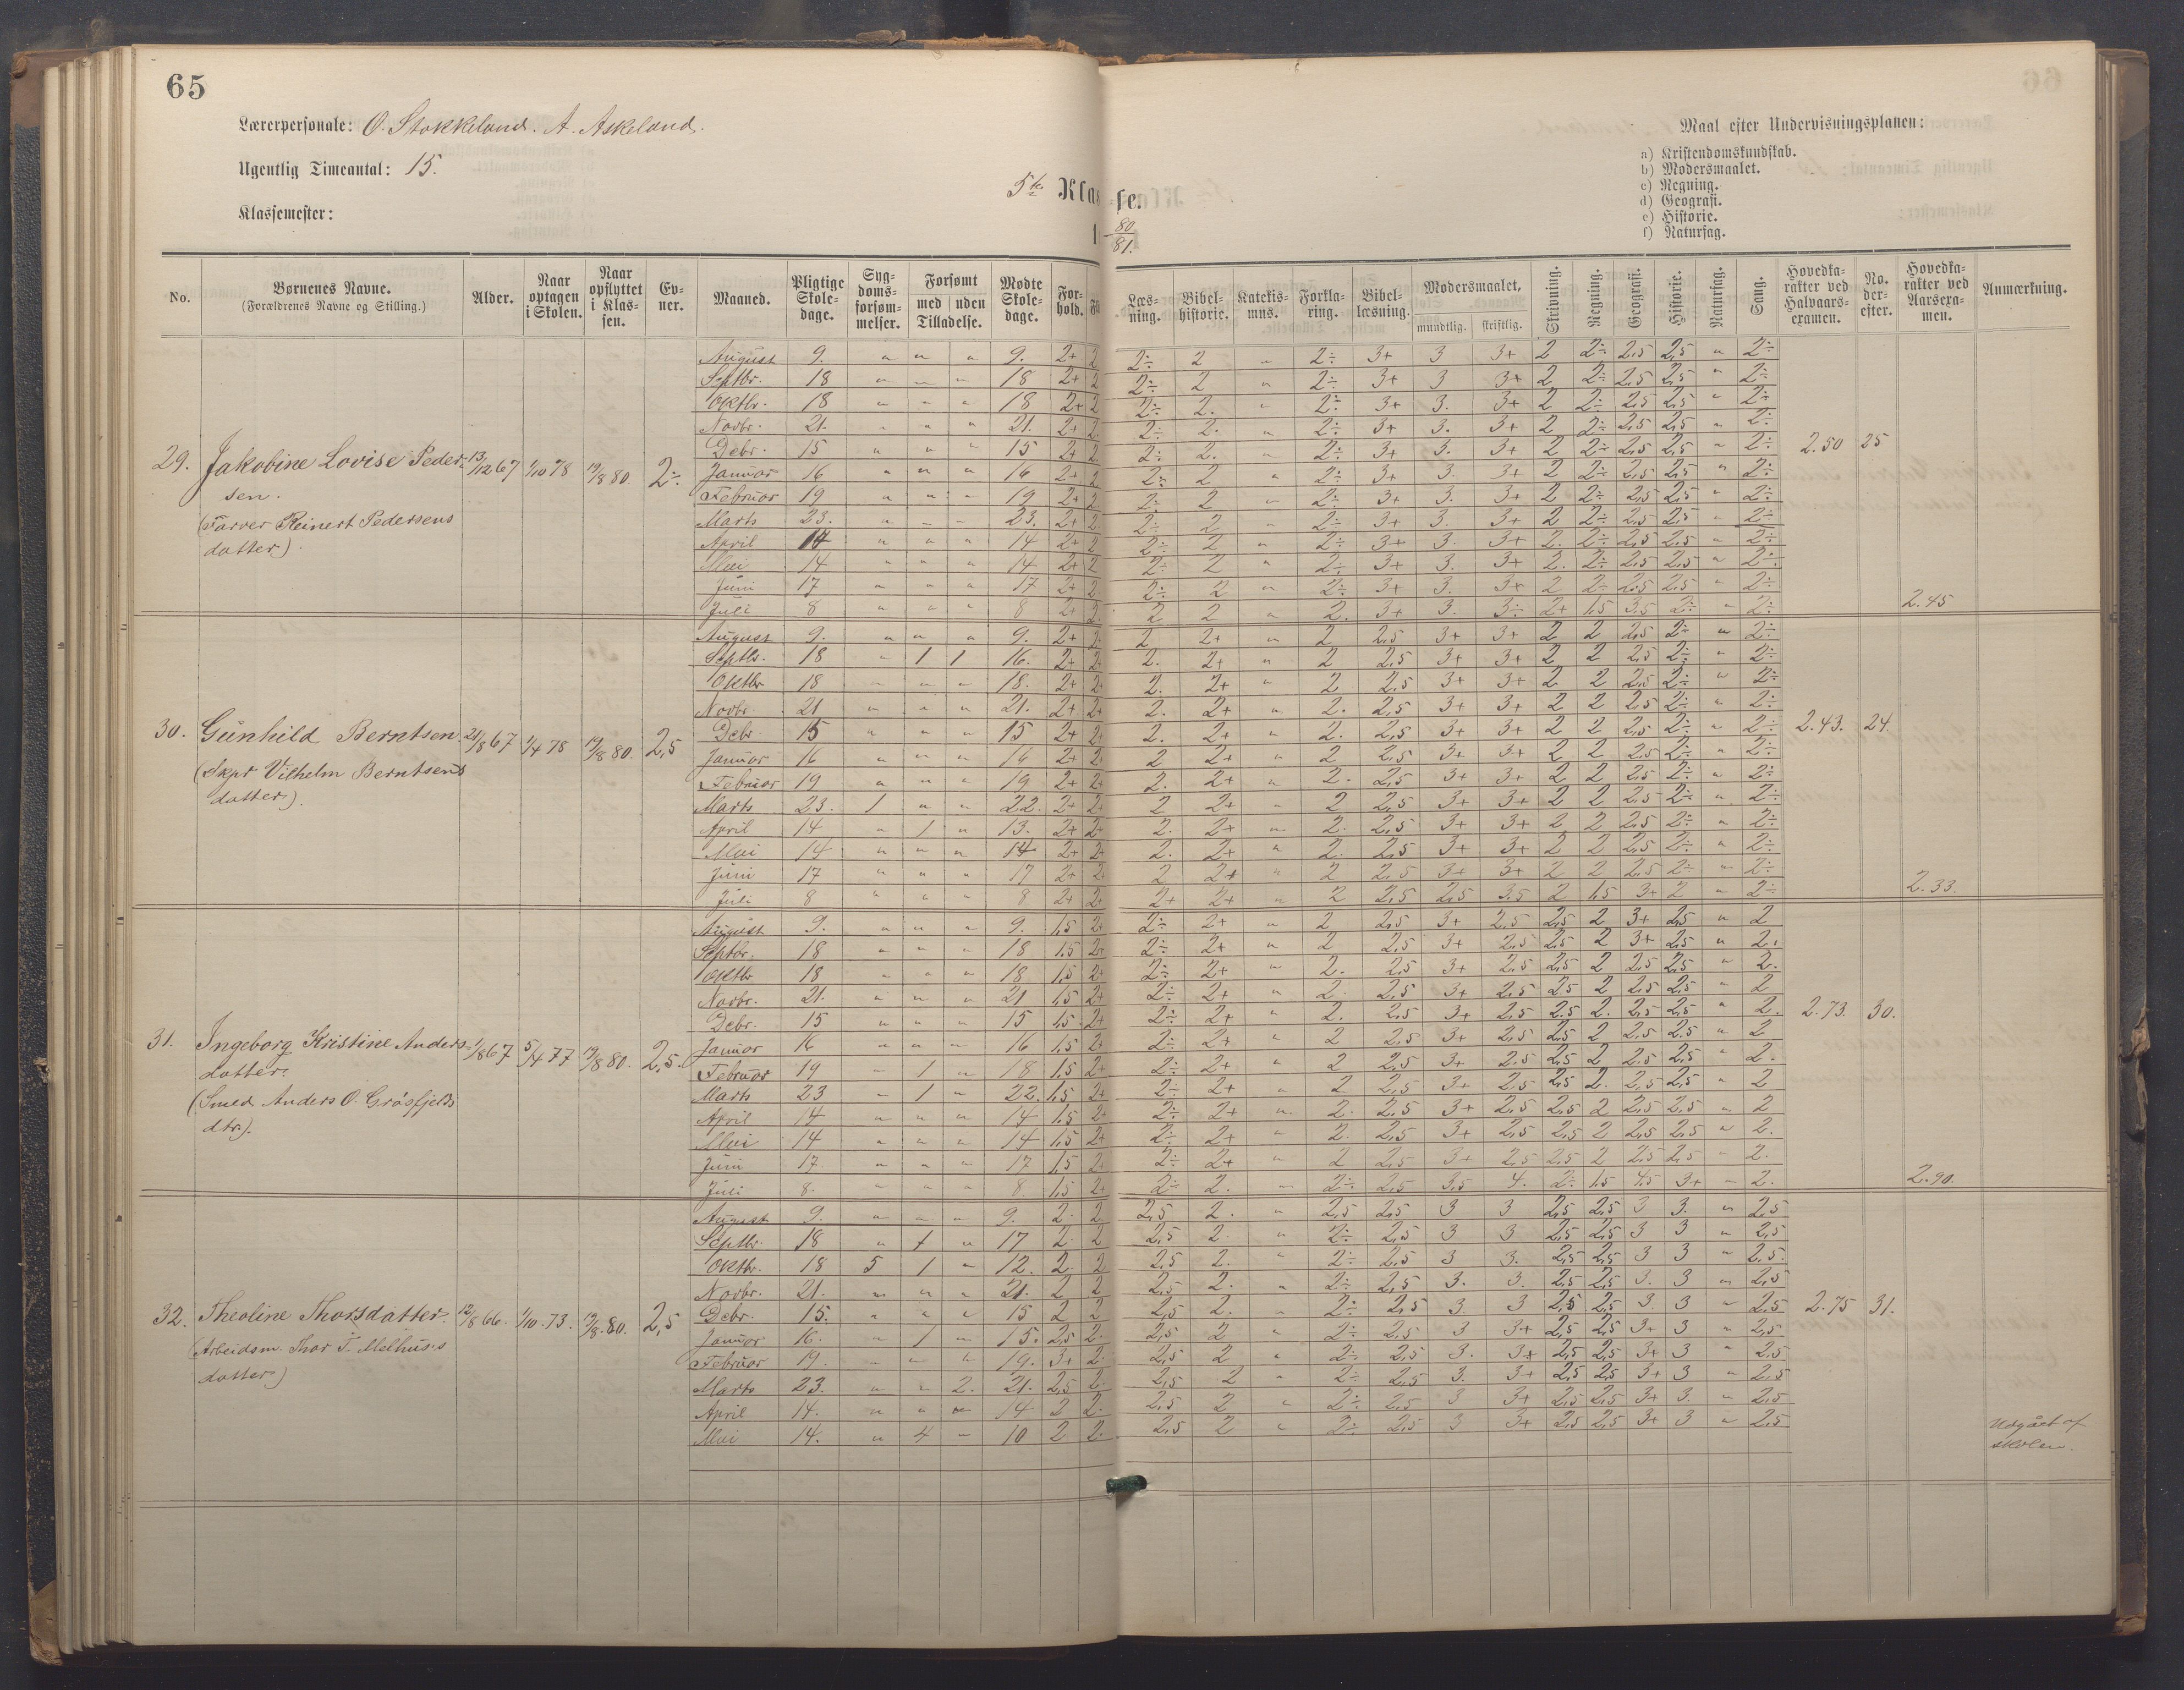 65
Lærerpersonale: O. Stokkeland. A. Askeland.
Ugentlig Timeantal: 15.
Klassemester:
5te Klasse.
1 80/81.
Maal efter Undervisningsplanen:
a) Kristendomskundskab.
b) Modersmaalet.
c) Regning.
d) Geografi.
e) Historie.
f) Naturfag.
No. Børnenes Navne. (Forældrenes Navne og Stilling.) Alder. Naar optagen i Skolen. Naar opflyttet i Klassen. Evner. Maaned. Pligtige Skoledage. Sygdomsforsømmelser. Forsømt med uden Tilladelse. Mødte Skoledage. Forhold. Læsning. Bibelhistorie. Katekismus. Forklaring. Bibellæsning. Modersmaalet, mundtlig. skriftlig. Skrivning. Regning. Geografi. Historie. Naturfag. Sang. Hovedkarakter ved Halvaarsexamen. No. derefter. Hovedkarakter ved Aarsexamen. Anmærkning.
August 9. " " " 9. 2+ 2 2÷ 2 " 2÷ 3+ 3 3+ 2 2÷ 2,5 2,5 " 2÷
Septbr. 18 " " " 18 2+ 2 2÷ 2 " 2÷ 3+ 3 3+ 2 2÷ 2,5 2,5 " 2÷
Oktbr. 18 " " " 18 2+ 2 2÷ 2. " 2÷ 3+ 3. 3+ 2 2÷ 2,5 2,5 " 2÷
Novbr. 21. " " " 21. 2+ 2. 2÷ 2. " 2÷ 3+ 3. 3+ 2 2÷ 2,5 2,5 " 2÷
Debr. 15 " " " 15 2+ 2 2÷ 2. " 2÷ 3+ 3. 3+ 2 2÷ 2,5 2,5 " 2÷ 2.50 25
29. Jakobine Lovise Peder- 13/12 67 1/10 78 19/8 80. 2÷ Januar 16 " " " 16 2+ 2 2÷ 2 " 2÷ 3+ 3. 3+ 2 2÷ 2,5 2,5 " 2÷
sen. Februar 19 " " " 19 2+ 2 2÷ 2 " 2÷ 3+ 3. 3+ 2 2÷ 2,5 2,5 " 2÷
(Farver Reinert Pedersens Marts 23. " " " 23. 2+ 2. 2÷ 2 " 2÷ 3+ 3. 3+ 2 2÷ 2,5 2,5 " 2÷
datter). April 14 " " " 14 2+ 2 2÷ 2 " 2÷ 3+ 3. 3+ 2. 2÷ 2,5 2,5 " 2÷
Mai 14 " " " 14 2+ 2 2÷ 2 " 2÷ 3+ 3. 3+ 2. 2÷ 2,5 2,5 " 2÷
Juni 17 " " " 17 2+ 2 2÷ 2 " 2÷ 3+ 3. 3+ 2 2÷ 2,5 2,5 " 2÷
Juli 8 " " " 8 2+ 2. 2 2 " 2. 3+ 3. 3÷ 2+ 1,5 3,5 2÷ " 2÷ 2.45
August 9. " " " 9. 2+ 2 2+ " 2 2,5 3+ 3+ 2 2 2,5 2÷ " 2÷
Septb. 18 " 1 1 16. 2+ 2+ 2. 2+ " 2 2,5 3+ 3+ 2 2 2,5 2÷ " 2÷
Oktbr 18 " " " 18. 2+ 2+ 2. 2+ " 2 2,5 3+ 3+ 2 2 2,5 2÷ " 2÷
Novbr. 21 " " " 21. 2+ 2+ 2. 2+ " 2. 2,5 3+ 3+ 2 2 2,5 2÷ " 2÷
30. Gunhild Berntsen 21/8 67 1/4 78 19/8 80. 2,5 Debr. 15 " " " 15 2+ 2+ 2. 2+ " 2. 2,5 3+ 3+ 2 2 2,5 2÷ " 2÷ 2.43. 24.
Januar 16 " " " 16 2+ 2+ 2 2+ " 2 2,5 3+ 3+ 2 2 2,5 2÷ " 2÷
(Skpr Vilhelm Berntsens Februar 19 " " " 19 2+ 2+ 2. 2+ " 2. 2,5 3+ 3+ 2 2 2,5 2÷ " 2÷
datter). Marts 23. 1 " " 22. 2+ 2+ 2 2+ " 2 2,5 3+ 3+ 2 2 2,5 2÷ " 2÷
April 14 " 1 " 13. 2+ 2+ 2. 2+ " 2. 2,5 3+ 3+ 2 2 2,5 2÷ " 2÷
Mai 14 " " " 14 2+ 2+ 2. 2+ " 2. 2,5 3+ 3+ 2 2 2,5 2÷ " 2÷
Juni 17 " " " 17 2+ 2+ 2 2+ " 2 2,5 3+ 3+ 2 2 2,5 2÷ " 2÷
Juli 8 " " " 8 2+ 2+ 2+ 2+ " 2 2,5 2,5 3.5 2 1,5 3+ 2 " 2÷ 2.33.
August 9. " " " 9. 1,5 2+ 2÷ 2+ " 2 2,5 3+ 2,5 2,5 2 3+ 2,5 " 2
Septbr. 18 " " " 18 1,5 2+ 2÷ 2+ " 2 2,5 3+ 2,5 2,5 2 3+ 2,5 " 2.
Oktbr 18 " " " 18 1,5 2+ 2÷ 2+ " 2. 2,5 3+ 2,5 2,5 2 2,5 2,5 " 2.
Novbr. 21. " " " 21 1,5 2+ 2÷ 2+ " 2. 2,5 3+ 2,5 2,5 2 2,5 2,5 " 2
Debr. 15 " " " 15 1,5 2+ 2÷ 2+ " 2. 2,5 3+ 2,5 2.5 2. 2,5 2,5 " 2. 2.73. 30.
31. Ingeborg Kristine Anders- 1/8 67 5/4 77 19/8 80. 2,5. Januar 16 " " " 16 1,5 2+ 2÷ 2+ " 2 2,5 3+ 2,5 2,5 2 2,5 2.5 " 2
datter. Februar 19 " 1 " 18 1,5 2+ 2÷ 2+ " 2 2,5 3+ 2,5 2,5 2 2,5 2,5 " 2.
(Smed Anders O. Gråsfjelds Marts 23 " 1 " 22. 1,5 2+ 2÷ 2+ " 2 2,5 3+ 2,5 2,5 2. 2,5 2,5 " 2
dtr.). April 14 " " " 14 1,5 2+ 2÷ 2+ " 2. 2,5 3+ 2,5 2,5 2 2,5 2,5 " 2
Mai 14 " " " 14 1,5 2+ 2÷ 2+ " 2. 2,5 3+ 2,5 2,5 2 2,5 2,5 " 2.
Juni 17 " " " 17 1,5 2+ 2÷ 2+ " 2 2,5 3+ 2,5 2,5 2 2,5 2,5 " 2.
Juli 8. " " " 8. 1,5 2+ 2÷ 2. " 2÷ 2,5 3,5 4. 2÷ 1,5 4,5 3+ " 2. 2.90.
August 9. " " " 9. 2. 2 2,5 2. " 2,5 2,5 3 3 2,5 2,5 3 3. " 2,5
Septbr. 18 " 1 " 17 2. 2 2,5 2. " 2÷ 2,5 3 3 2,5 2,5 3 3 " 2,5
Oktbr. 18 5 1 " 12. 2. 2 2,5 2. " 2÷ 2,5 3 3. 2,5 2,5 3 3 " 2,5.
Novbr. 21. " " " 21. 2 2 2,5 2. " 2÷ 2,5 3. 3. 2,5 2,5 3. 3 " 2,5
32. Theoline Thorsdatter. 12/8 66. 1/10 73. 19/8 80. 2,5 Debr. 15. " " " 15 2 2 2,5 2. " 2÷ 2,5 3. 3 2,5 2,5 3. 3 " 2,5 2.75 31.
(Arbeidsm. Thor T. Melhus's Januar 16. " 1 " 15. 2,5 2. 2,5 2 " 2÷ 2,5 3 3+ 2,5 2,5 3+ 3 " 2,5
datter) Februar 19. " " " 19. 3+ 2. 2,5 2 " 2÷ 2,5 3. 3+ 2,5 2,5 3+ 3 " 2,5
Marts 23. " " 2. 21. 2,5 2. 2,5 2 " 2÷ 2,5 3. 3+ 2,5 2,5 3+ 3 " 2,5
April 14. " " " 14 2 2. 2,5 2 " 2÷ 2,5 3 3+ 2,5 2,5 3+ 3. " 2,5
Mai 14. " 4 " 10 2 2. 2,5 2 " 2÷ 2,5 3 3+ 2,5 2,5 3+ 3 " 2,5 Udgået af
skolen.